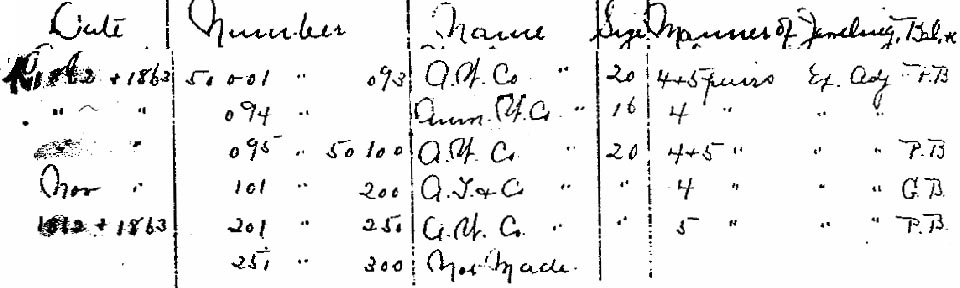 Date Number Name Size Manner of Jeweling, Bal, &c
1862 + 1863 50 001 " 093 A. W. Co " 20 4+5 pairs Ex. Adj P.B
" " 094 " Amn. W. Co " 16 4 " " "
" 095 " 50 100 A. W. Co " 20 4+5 " " " P.B
Nov " 101 " 200 A. T. & Co " " 4 " " " G.B.
1862 + 1863 201 " 250 A. W. Co. " " 5 " " " P.B.
251 " 300 Not Made.